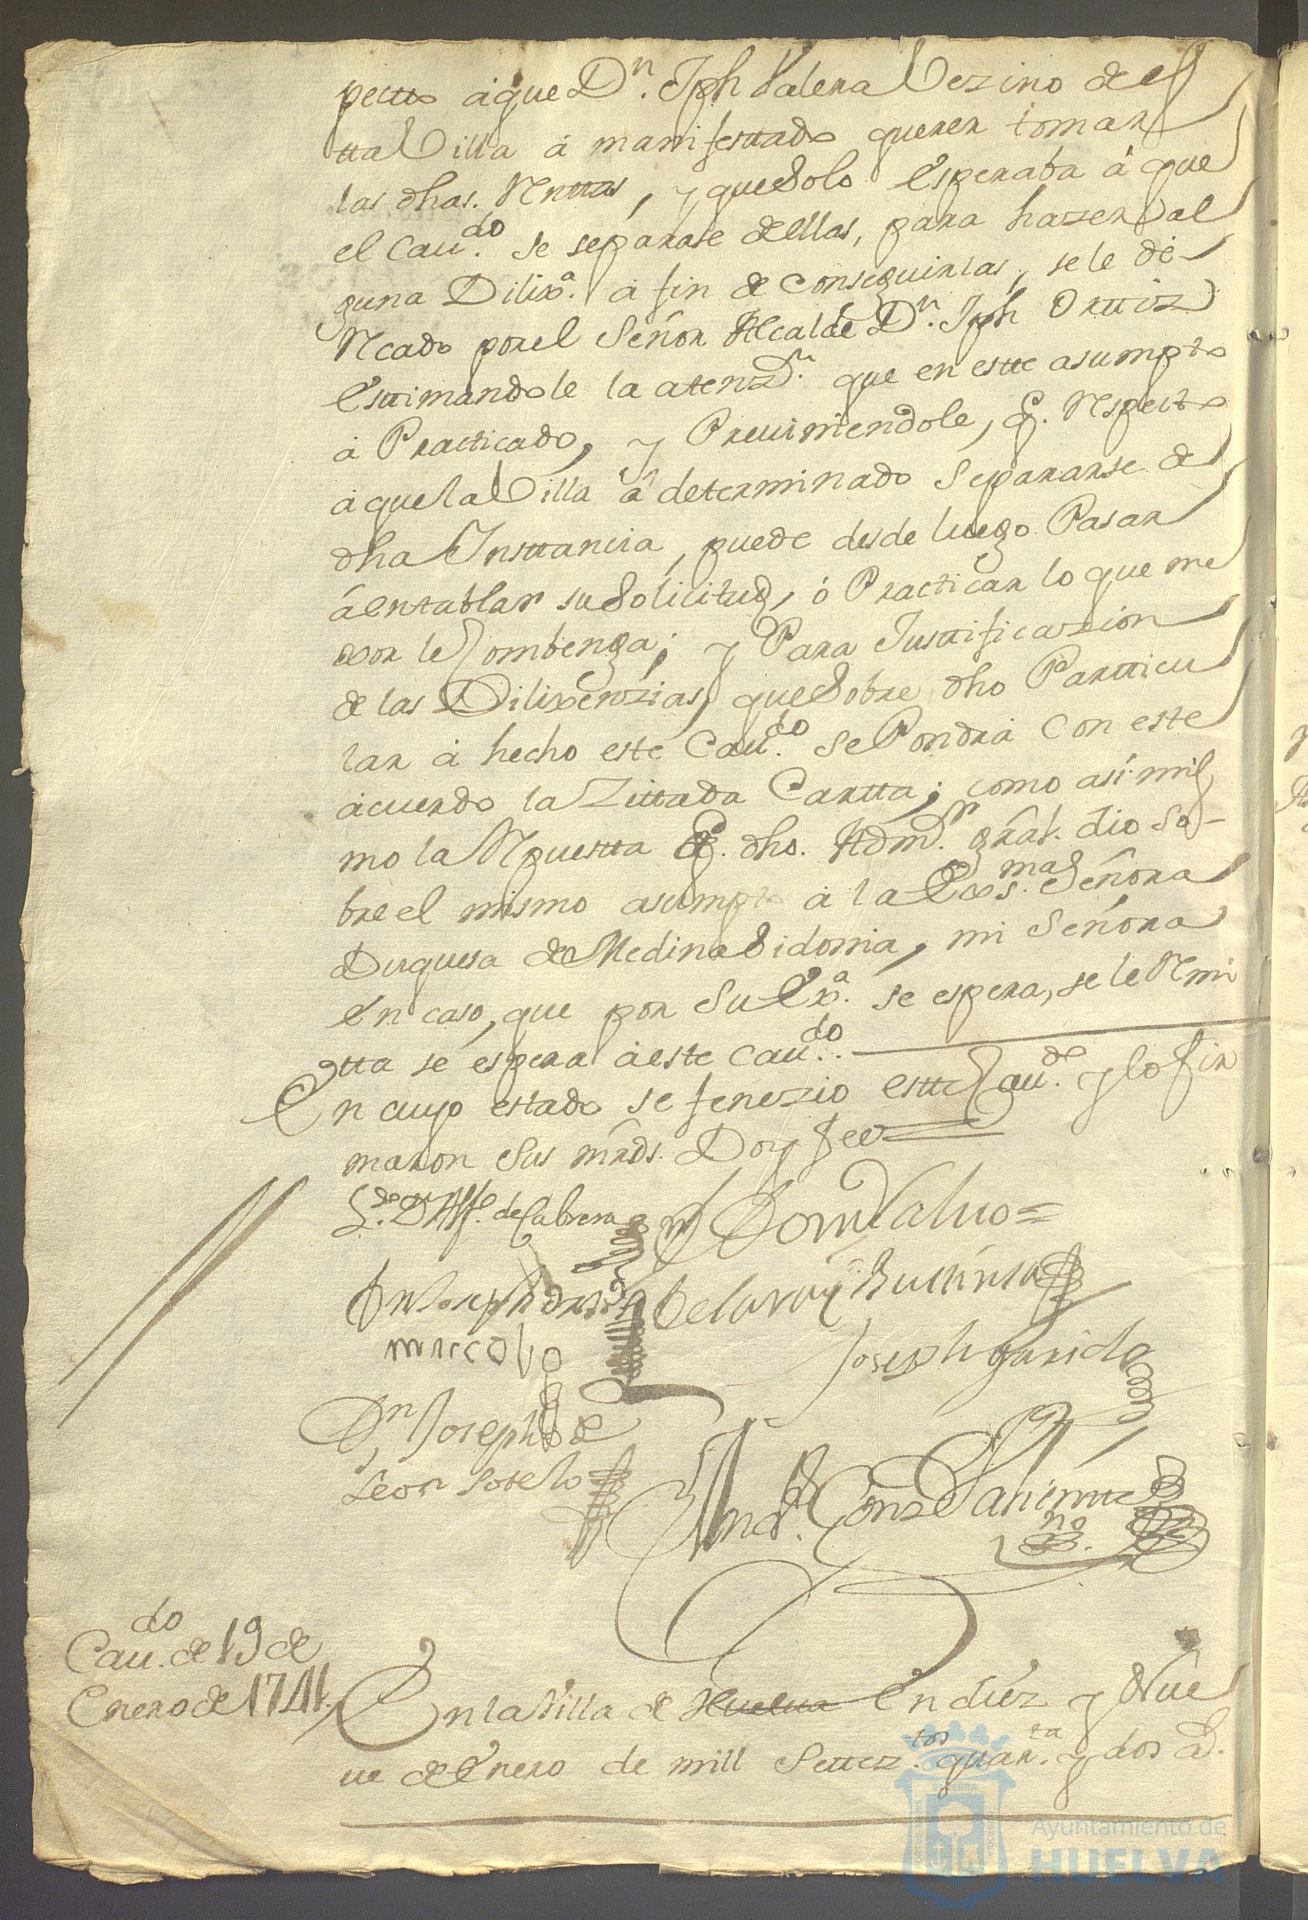 pectto áque Dn. Jph Valera Vezino de es
tta Villa á manifesttado querer tomar
las dhas. Rnttas, y que solo esperaba á que
el Caudo. se separase de ellas, para hazer al
guna Dilixa. á fin de conseguirlas, se le dè
Rcado por el Señor Alcalde Dn. Jph Orttiz
esttimandole la atenzn. que en estte asumpto
á Practicado, y Previniendole, q. Respecto
áque la Villa á determinado Separarse de
dha Insttancia, puede desde luego Pasar
á entablar su Solicitud, ó Practicar lo que me
xor le Combenga; y Para Justtificazion
de las Dilixenzias, que Sobre dho Partticu
lar á hecho este Caudo. se Pondrá Con este
ácuerdo la Zittada Cartta; como asi mis
mo la Rpuestta q. dho. Admr. gral. dio so-
bre el mismo asumpto á la Exsma. Señora
Duquesa de Medina Sidonia, mi Señora
en caso, que por Su Exa. se espera, se le Rmi
tta se espera á este Caudo.
En cuyo estado se fenezio estte Caudo. y lo fir
maron Sus mrds. Doy fee
Ldo. Dn Alfo. de Cabrera
Dn Joseph Ortiz
Dn Joseph de
Leon Sotelo
Joseph garrido
Caudo. de 19 de
Enero de 1741.
En la Villa de Huelua en diez y Nue
ue de Enero de mill Setteztos. quarta. y dos as.
Ayuntamiento de
HUELVA